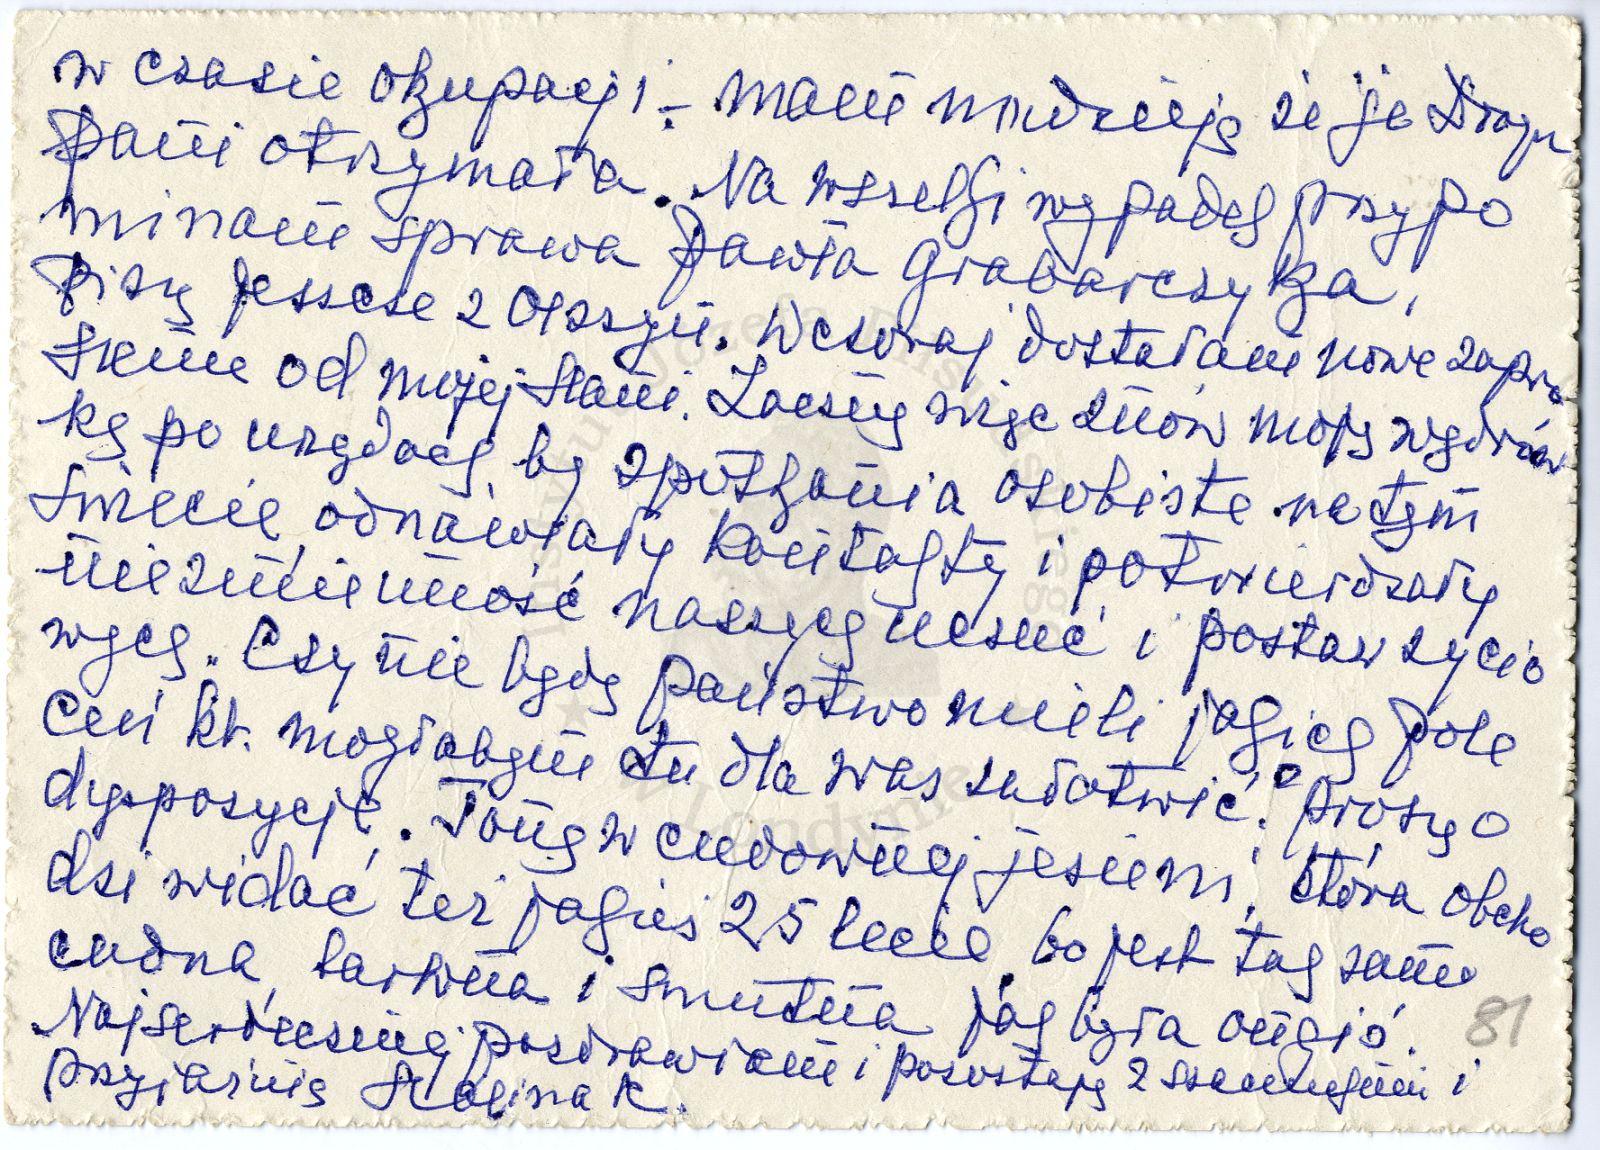 w czasie okupacji – mam nadzieję że je Droga
Pani otrzymała. Na wszelki wypadek przypo
minam sprawa Pawła Grabarczyka.
Piszę jeszcze z Olszyn. Wczoraj dostałam nowe zapro
szenie od mojej Hani. Zacznę więc znów moją wędrów
kę po urzędach by spotkania osobiste na tym
świecie odnawiały kontakty i potwierdzały
niezmienność naszych uczuć i postaw życio
wych. Czy nie będą państwo mieli jakich pole
ceń kt. mogłabym tu dla was załatwić? Proszę o
dyspozycje. Tonę w cudownej jesieni, która obcho
dzi widać też jakieś 25 lecie, bo jest tak samo
cudna, barwna i smutna jak była ongiś.
Najserdeczniej pozdrawiam i pozostaję z szacunkiem i
przyjaźnią Halina K.
81
Instytut Józefa Piłsudskiego
w Londynie